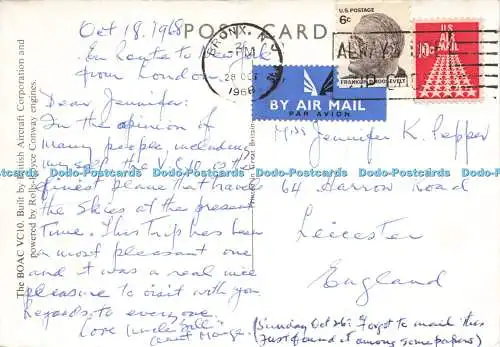 Oct 18. 1968
POST CARD
En Route to New York
from London.
Dear Jennifer:
In the opinion of
many people, including
myself the V.C.10 is the
finest plane that travels
the skies at the present
time. This trip has been
a most pleasant one
and it was a real nice
pleasure to visit with you.
Regards to everyone.
Love Uncle Bill
aunt Marge.
The BOAC VC10. Built by British Aircraft Corporation and
powered by Rolls-Royce Conway engines.
BRONX, N.Y.
PM
28 OCT
1968
ALWAYS
U.S. POSTAGE
6c
FRANKLIN D. ROOSEVELT
U.S.
AIR MAIL
10c
BY AIR MAIL
PAR AVION
Miss Jennifer K. Pepper
64 Harrow Road
Leicester
England
(Sunday Oct 26: Forgot to mail this
Just found it among some papers)
Hippostcard